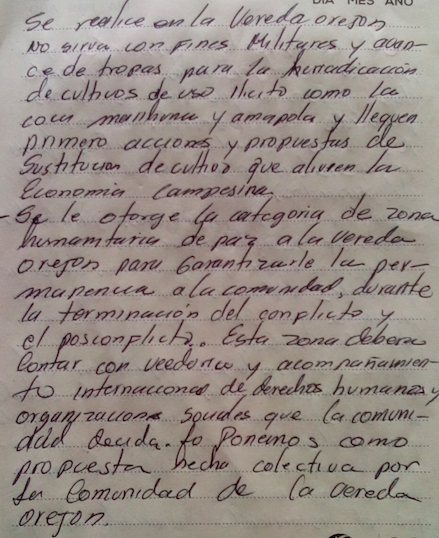 DIA MES AÑO
Se realice en la Vereda orejon
No sirva con Fines Militares y avan-
ce de tropas, para la hurradicación
de cultivos de uso Ilicito como la
coca marihuna y amapola y lleguen
primero acciones y propuestas de
Sustitucion de cultivo que aliveen la
Economia Campesina
- Se le otorge la categoria de zona
humanitaria de paz a la Vereda
orejon para Garantizarle la per-
manencia a la comunidad, durante
la terminación del conflicto y
el posconflicto. Esta zona debera
Contar con veeduria y acompañamien-
to internacional de derechos humanos y
organizaciones sociales que la comuni-
dad decida. lo Ponemos como
propuesta hecha colectiva por
la Comunidad de la Vereda
orejon.